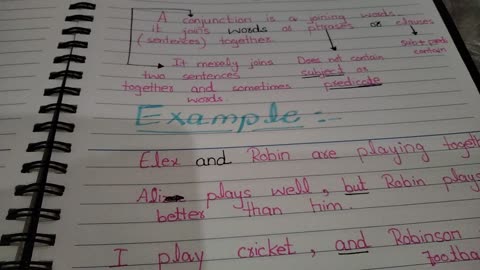 A conjunction is a joining words
it joins words or phrases or clauses
(sentences) together.
It merely joins two sentences together and sometimes words.
Does not contain subject or predicate
contain
Example :-
Elex and Robin are playing
Ali plays well, but Robin plays
better than him.
I play cricket, and Robinson